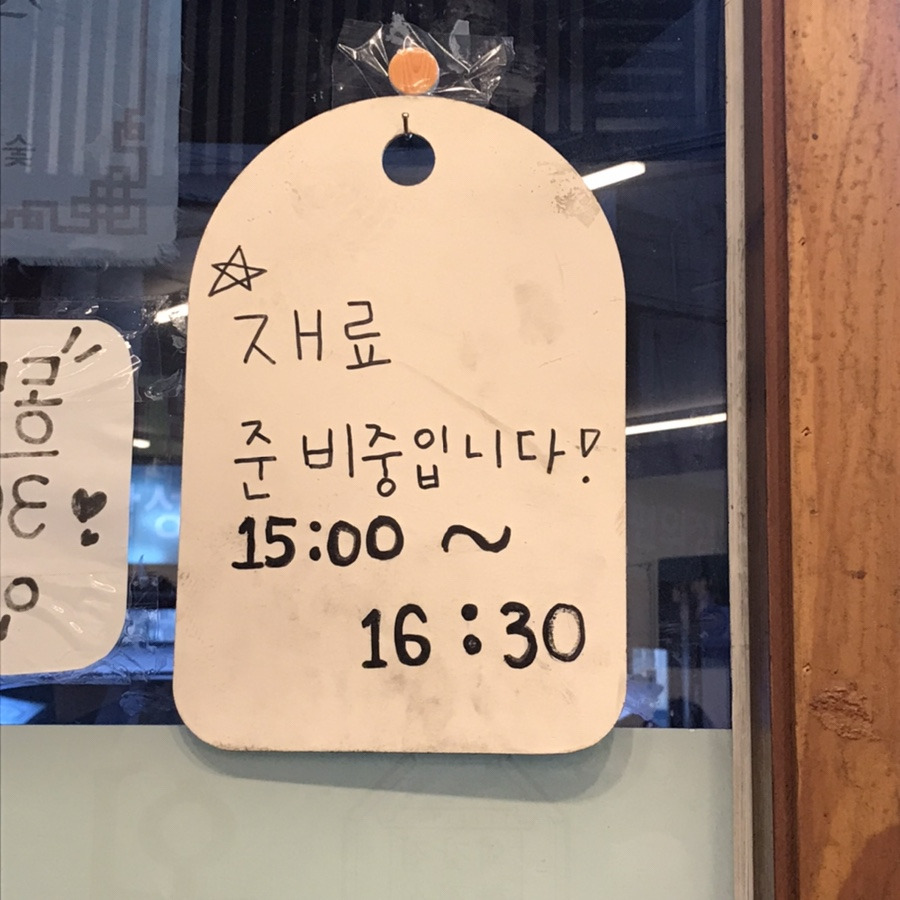 재료
준비중입니다!
15:00 ~
16:30